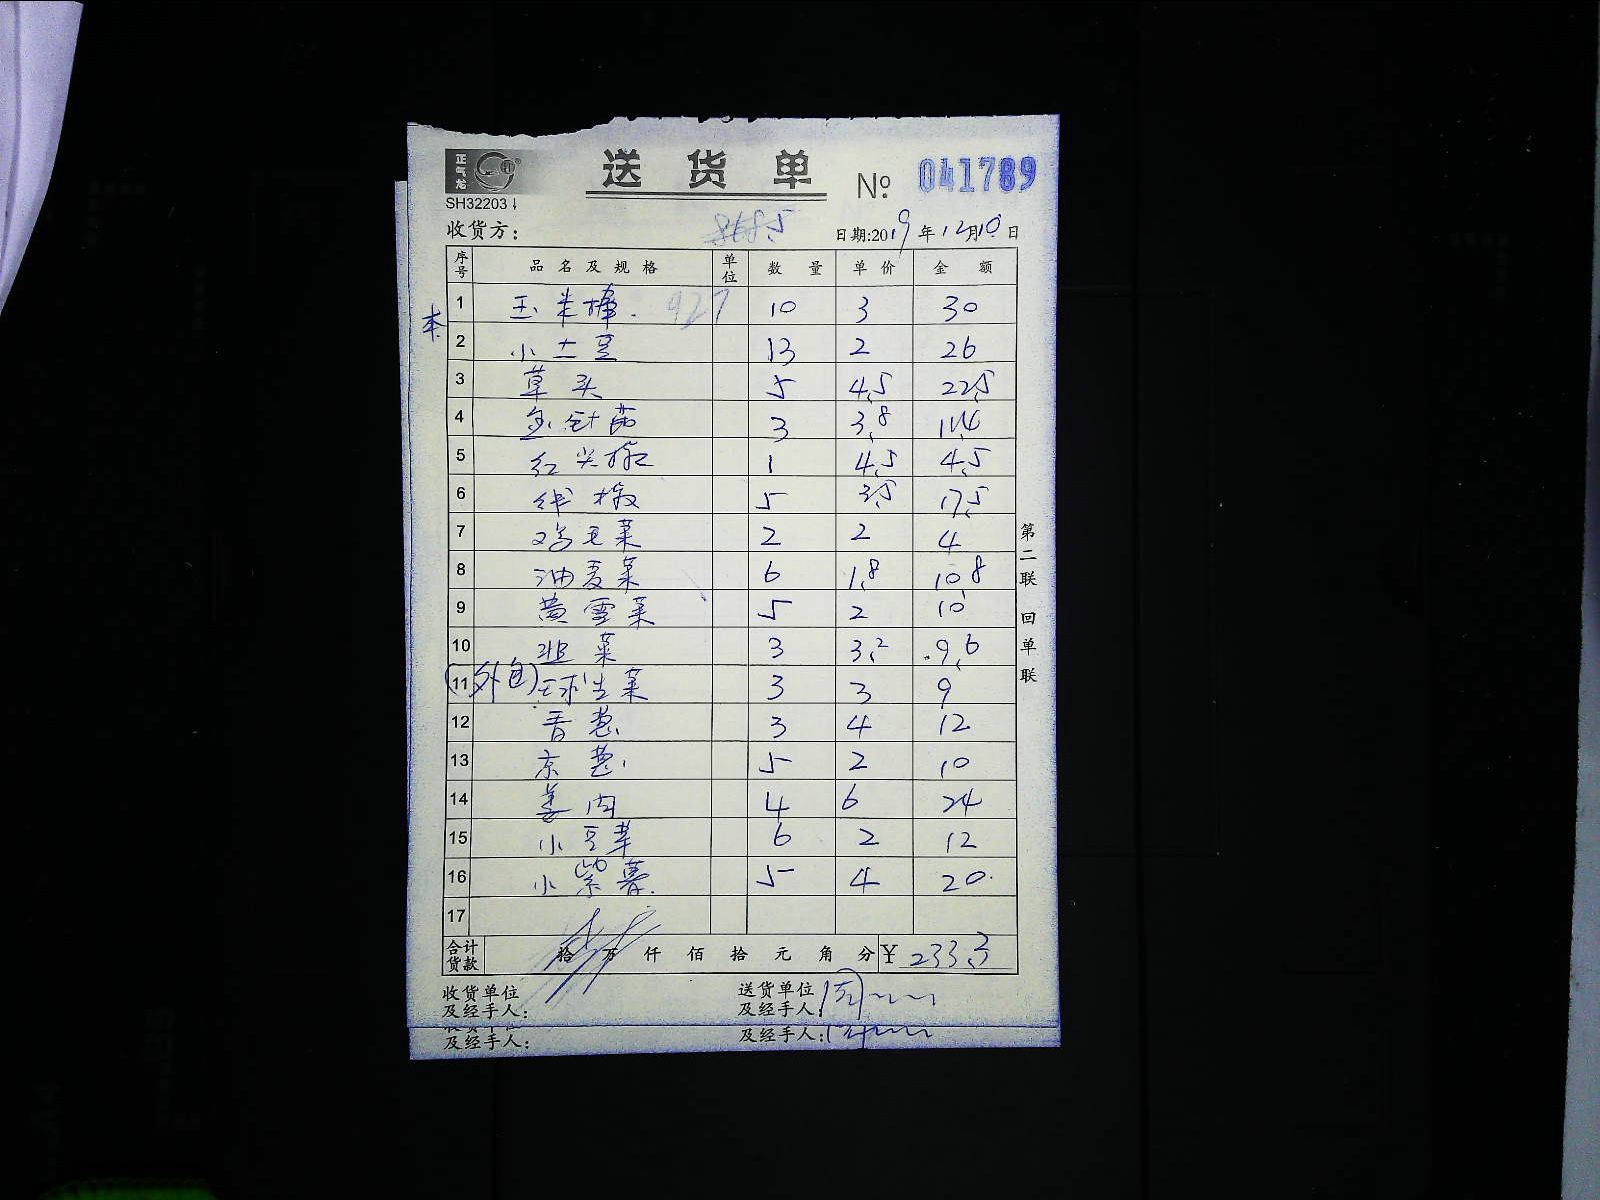 正气龙
送货单 No 041789
SH32203
收货方: 8685 日期:2019年12月10日
序号 品名及规格 单位 数量 单价 金额
本
1 玉米棒. 927 10 3 30
2 小土豆 13 2 26
3 草头 5 4.5 22.5
4 金针茹 3 3.8 11.4
5 红尖椒 1 4.5 4.5
6 线椒 5 3.5 17.5
7 鸡毛菜 2 2 4
8 油麦菜 6 1.8 10.8
9 黄雪菜 5 2 10
10 韭菜 3 3.2 9.6
11 (外包) 球生菜 3 3 9
12 香葱 3 4 12
13 京葱 5 2 10
14 姜肉 4 6 24
15 小豆芽 6 2 12
16 小紫薯. 5 4 20
17
合计货款 拾万仟佰拾元角分 ¥ 233.3
收货单位及经手人: 送货单位及经手人:
及经手人: 及经手人:
第二联 回单联